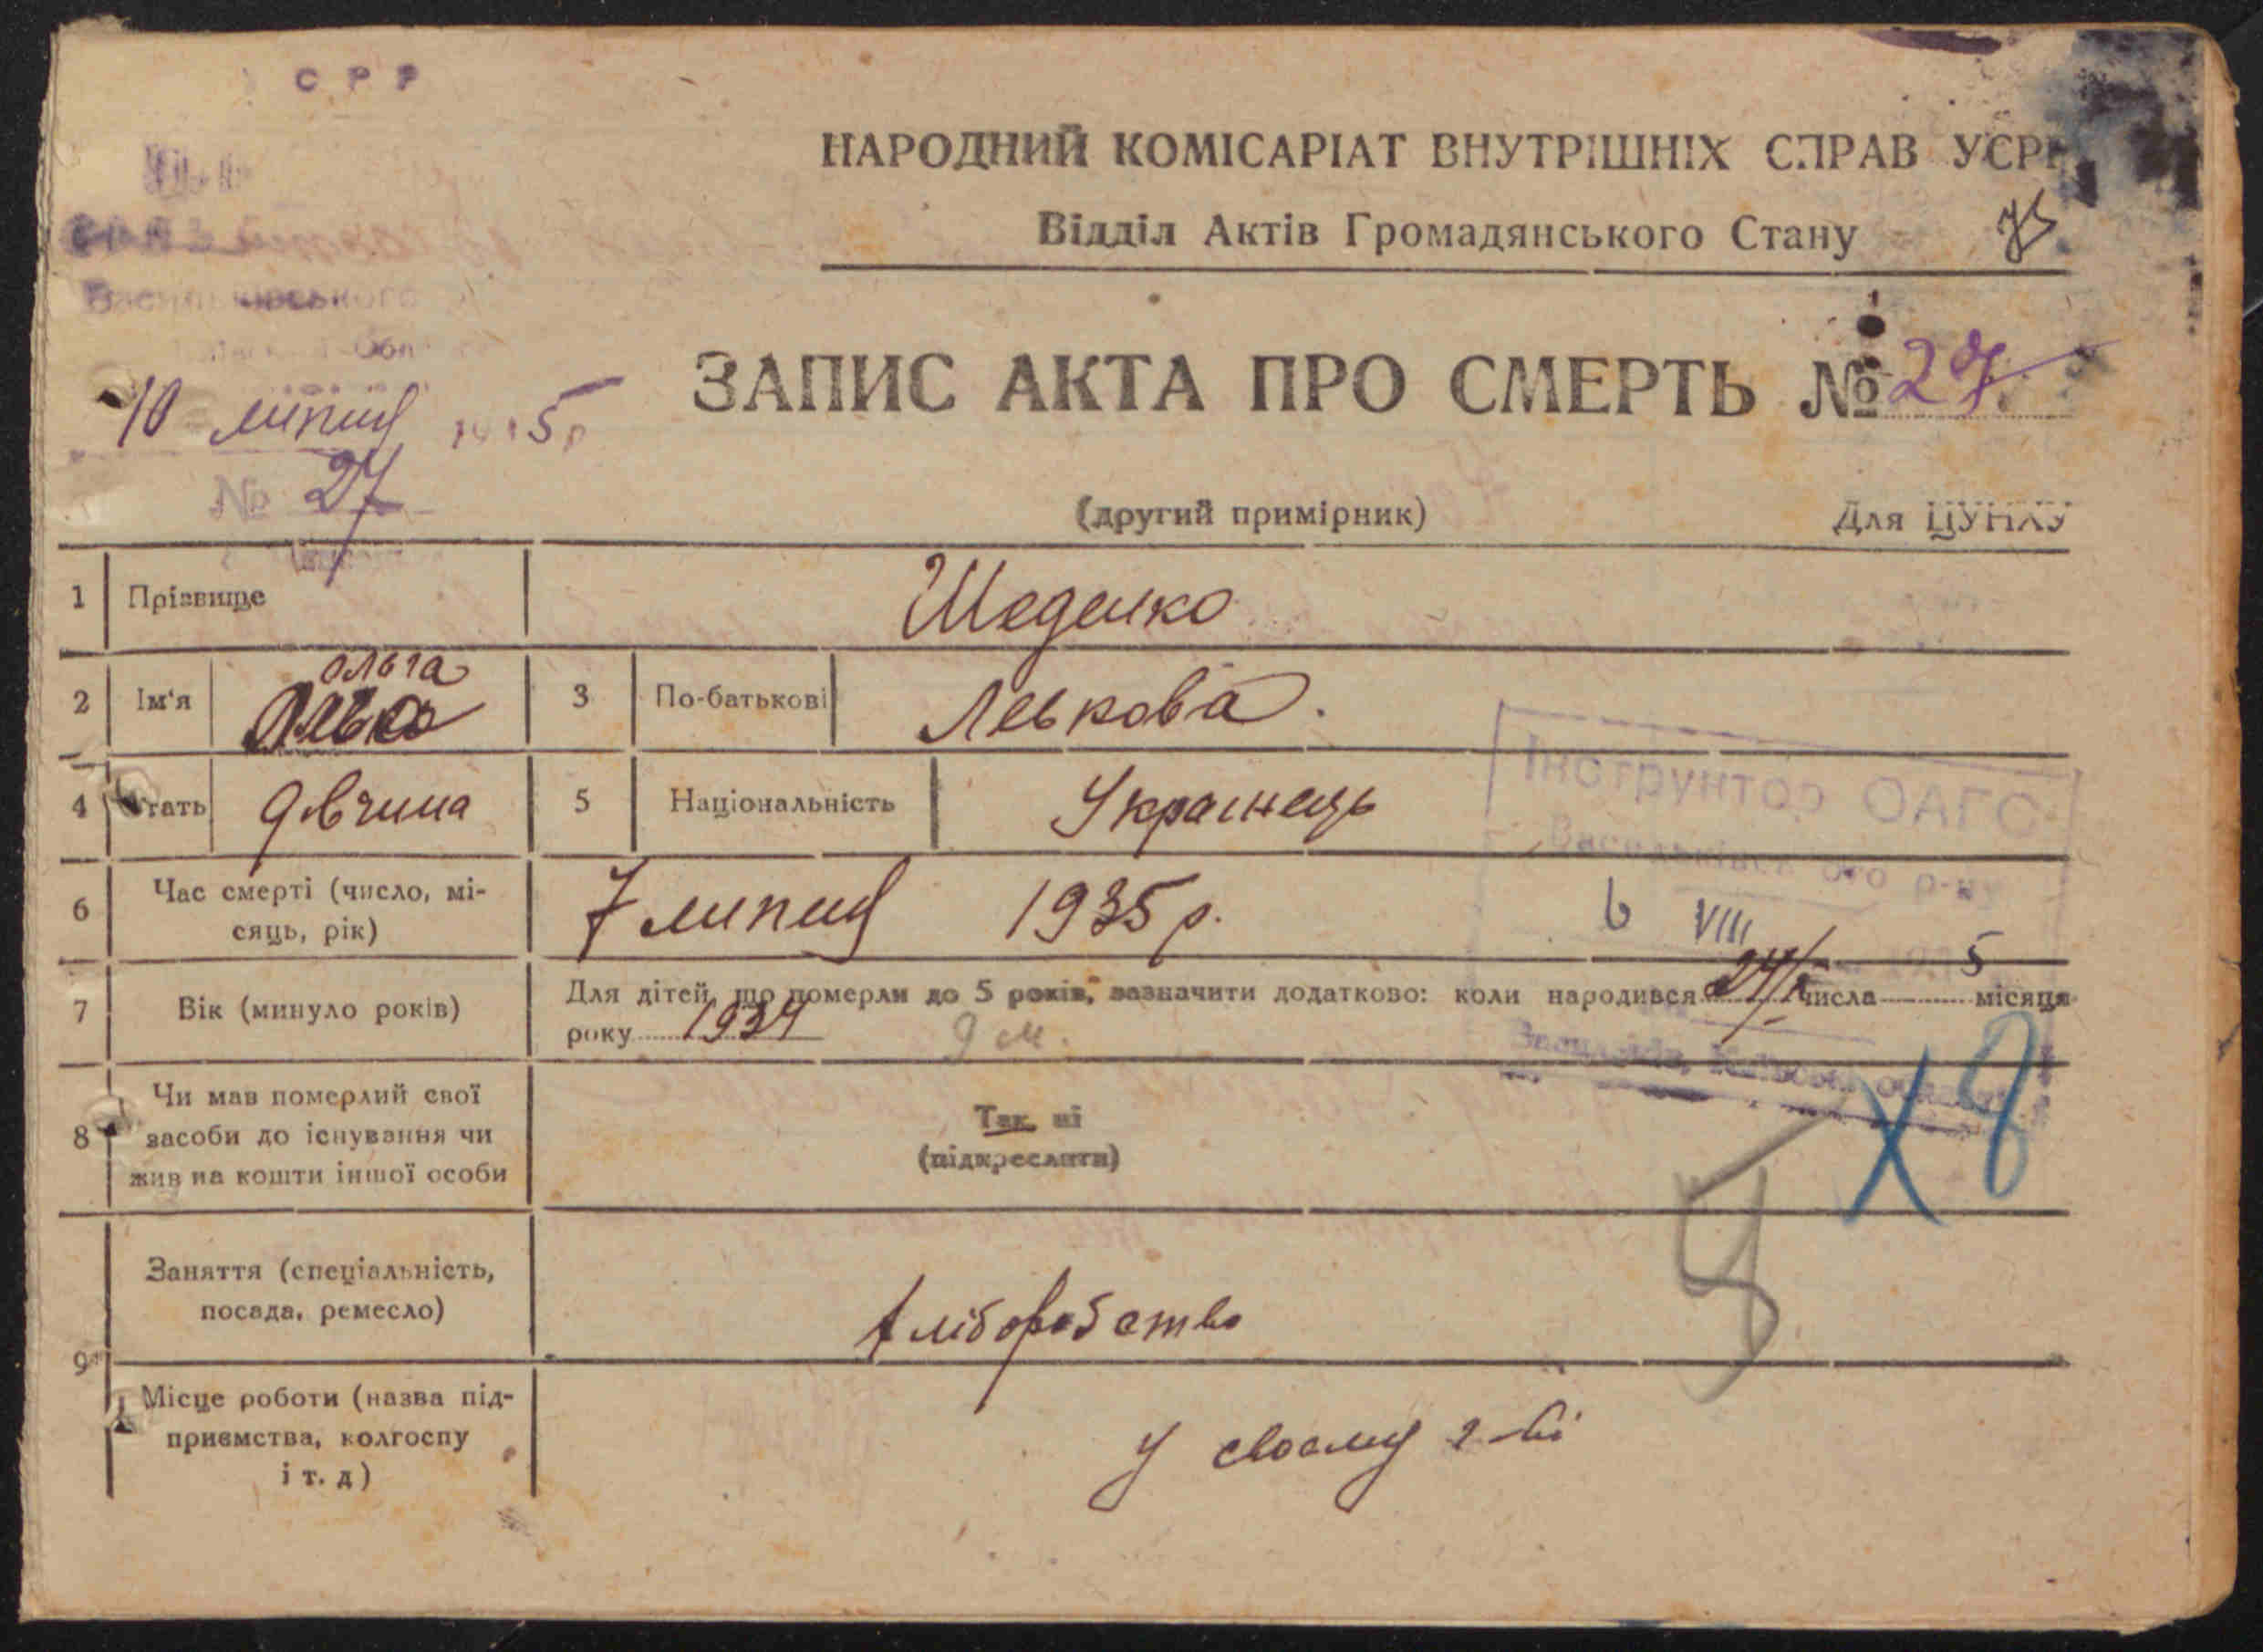 С Р Р
НАРОДНИЙ КОМІСАРІАТ ВНУТРІШНІХ СПРАВ УСРР
Відділ Актів Громадянського Стану 73
Васильківського
Обл
10 липня 1935 р
№ 27
ЗАПИС АКТА ПРО СМЕРТЬ № 27
(другий примірник) Для ЦУНХУ
1 Прізвище Шеденко
2 Ім'я Ольга 3 По-батькові Левкова.
4 Стать дівчина 5 Національність Українець
Інструктор ОАГС
Васильківського р-ну
6 VIII 5
6 Час смерті (число, мі-
сяць, рік) 7 липня 1935 р.
7 Вік (минуло років) Для дітей, що померли до 5 років, зазначити додатково: коли народився 24/X числа місяця
року 1934 9 м.
8 Чи мав померлий свої
засоби до існування чи
жив на кошти іншої особи
Так, ні
(підкреслити)
9 Заняття (спеціальність,
посада, ремесло) хліборобство
Місце роботи (назва під-
приємства, колгоспу
і т. д) у своєму г-ві